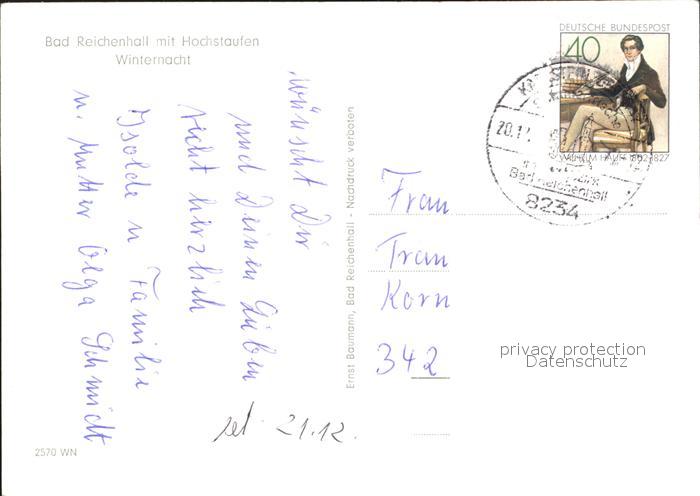 Bad Reichenhall mit Hochstaufen
Winternacht
wünscht Dir
und Deinen Lieben
recht herzlich
Isolde u Familie
u. Mutter Olga Schmidt
2570 WN
Ernst Baumann, Bad Reichenhall - Nachdruck verboten
DEUTSCHE BUNDESPOST
40
WILHELM HAUFF 1802-1827
20.12
Bad Reichenhall
8234
Frau
Frau
Korn
342
privacy protection
Datenschutz
21.12.